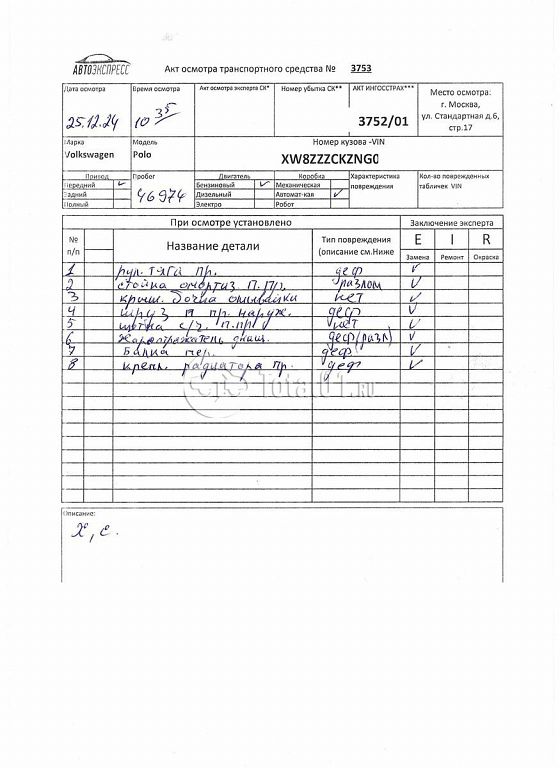 АВТОЭКСПРЕСС
Акт осмотра транспортного средства № 3753
Дата осмотра Время осмотра Акт осмотра эксперта СК* Номер убытка СК** АКТ ИНГОССТРАХ*** Место осмотра:
г. Москва,
ул. Стандартная д.6,
стр.17
25.12.24 10 35 3752/01
Марка Модель Номер кузова -VIN
Volkswagen Polo XW8ZZZCKZNG0
Привод Пробег Двигатель Коробка Характеристика повреждения Кол-во поврежденных табличек VIN
Передний ✓ 46974 Бензиновый ✓ Механическая
Задний Дизельный Автомат-кая ✓
Полный Электро Робот
При осмотре установлено Заключение эксперта
№ п/п Название детали Тип повреждения (описание см.Ниже E I R
Замена Ремонт Окраска
1 рул. тяга пр. деф ✓
2 стойка амортиз П.Пр. разлом ✓
3 крыш. бачка омывайки нет ✓
4 шруз п пр. наруж. деф ✓
5 п.пр нет ✓
6 Жароотражатель днищ. деф(разл) ✓
7 Балка пер. деф ✓
8 крепл. радиатора пр. деф ✓
Total01.ru
Описание:
х, с.